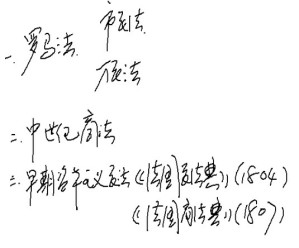 一. 罗马法 市民法
万民法
二. 中世纪商法
三. 早期资本主义民法《法国民法典》(1804)
《法国商法典》(1807)